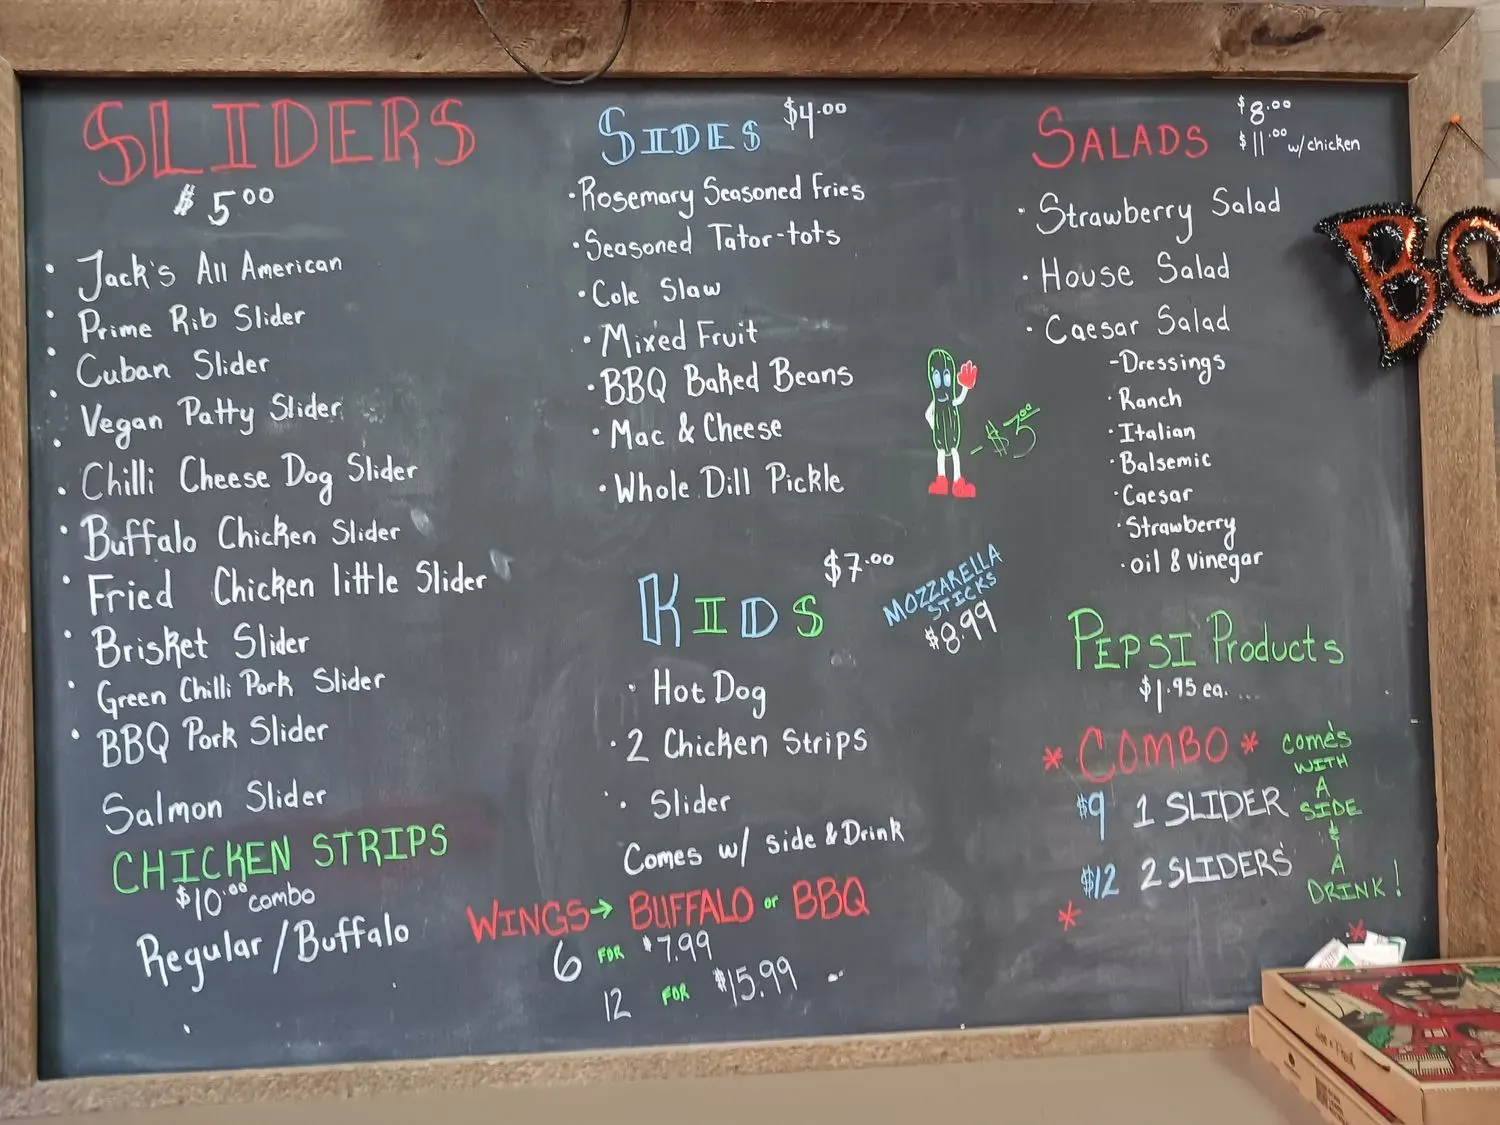 SLIDERS
$5.00
• Jack's All American
• Prime Rib Slider
• Cuban Slider
• Vegan Patty Slider
• Chilli Cheese Dog Slider
• Buffalo Chicken Slider
• Fried Chicken little Slider
• Brisket Slider
• Green Chilli Pork Slider
• BBQ Pork Slider
Salmon Slider
CHICKEN STRIPS
$10.00 combo
Regular/Buffalo
SIDES $4.00
• Rosemary Seasoned Fries
• Seasoned Tator-tots
• Cole Slaw
• Mixed Fruit
• BBQ Baked Beans
• Mac & Cheese
• Whole Dill Pickle
KIDS $7.00
• Hot Dog
• 2 Chicken Strips
• Slider
Comes w/ side & Drink
MOZZARELLA
STICKS
$8.99
WINGS→ BUFFALO or BBQ
6 FOR $7.99
12 FOR $15.99
SALADS $8.00
$11.00 w/chicken
• Strawberry Salad
• House Salad
• Caesar Salad
-Dressings
• Ranch
• Italian
• Balsemic
• Caesar
• Strawberry
• oil & vinegar
PEPSI Products
$1.95 ea.
* COMBO *
$9 1 SLIDER
$12 2 SLIDERS
comes
WITH
A
SIDE
&
A
DRINK!
BO